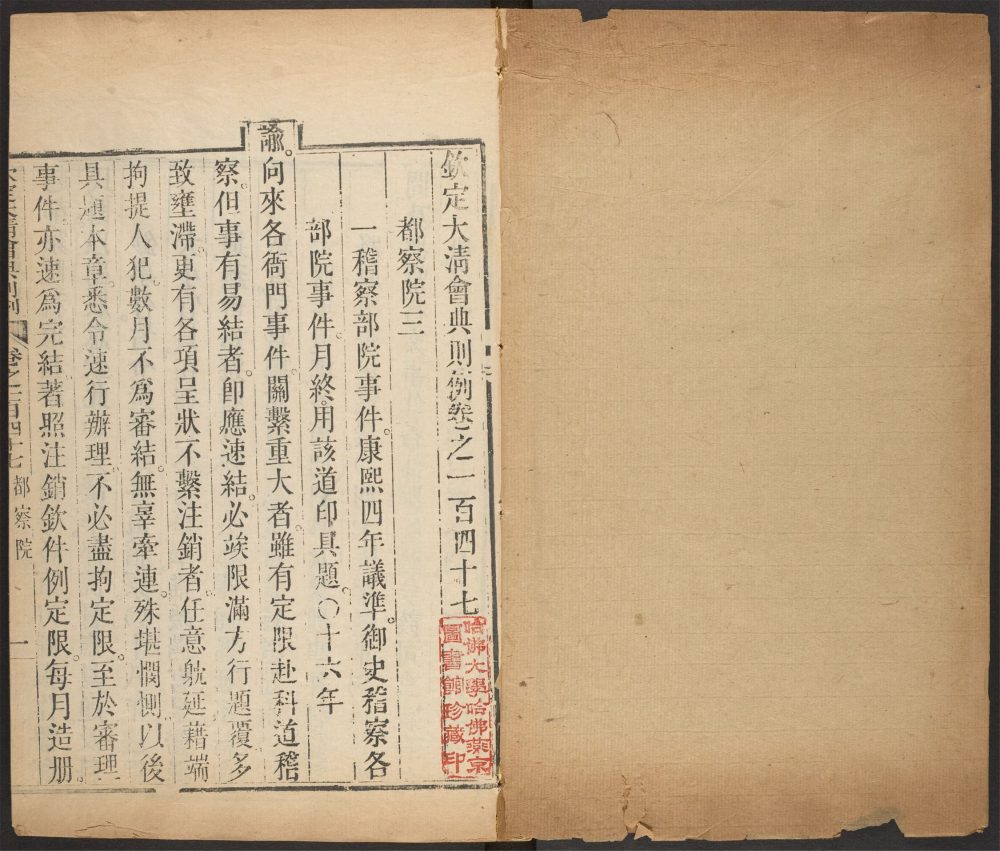 欽定大清會典則例卷之一百四十七
都察院三
一稽察部院事件康熙四年議準御史稽察各
部院事件月終用該道印具題〇十六年
諭向來各衙門事件關繫重大者雖有定限赴科道稽
察但事有易結者卽應速結必俟限滿方行題覆多
致壅滯更有各項呈狀不繫注銷者任意躭延藉端
拘提人犯數月不爲審結無辜牽連殊堪憫惻以後
具題本章悉令速行辦理不必盡拘定限至於審理
事件亦速爲完結著照注銷欽件例定限每月造册
欽定大清會典則例 卷之一百四十七都察院 一
哈佛大學哈佛燕京
圖書館珍藏印